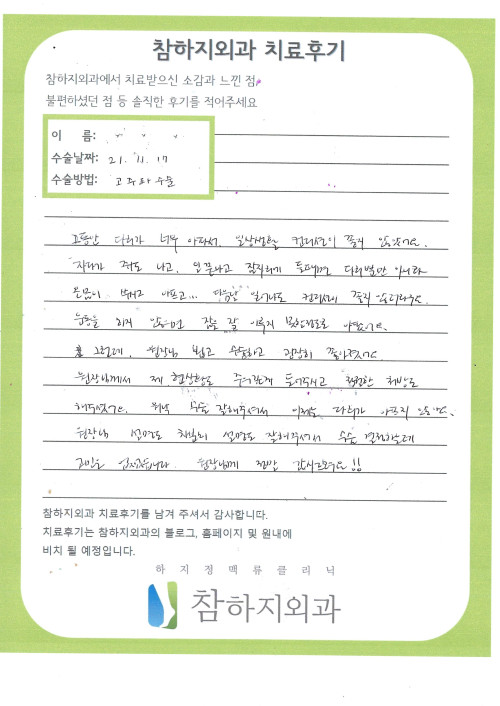 참하지외과 치료후기
참하지외과에서 치료받으신 소감과 느낀 점,
불편하셨던 점 등 솔직한 후기를 적어주세요
이 름:
수술날짜: 21. 11. 17
수술방법: 고주파 수술
그동안 다리가 너무 아파서, 일상생활 컨디션이 좋지 않았어요.
자다가 쥐도 나고, 일 끝나고 잠자기 다리뿐만 아니라
온몸이 아프고... 다음날 일어나도 컨디션이 좋지 않더라구요.
않으면 잠을 잘 이루지 못할정도로 아팠어요.
그런데, 원장님 뵙고 수술하고 굉장히 좋아졌어요.
원장님께서 제 현상황도 봐주시고 적절한 처방도
해주셨어요. 수술 잘해주셔서 이제는 다리가 아프지 않아요.
원장님 설명도 설명도 잘해주셔서 수술 결정하는데
고민을 원장님께 정말 감사드려요!!
참하지외과 치료후기를 남겨 주셔서 감사합니다.
치료후기는 참하지외과의 블로그, 홈페이지 및 원내에
비치 될 예정입니다.
하지정맥류클리닉
참하지외과